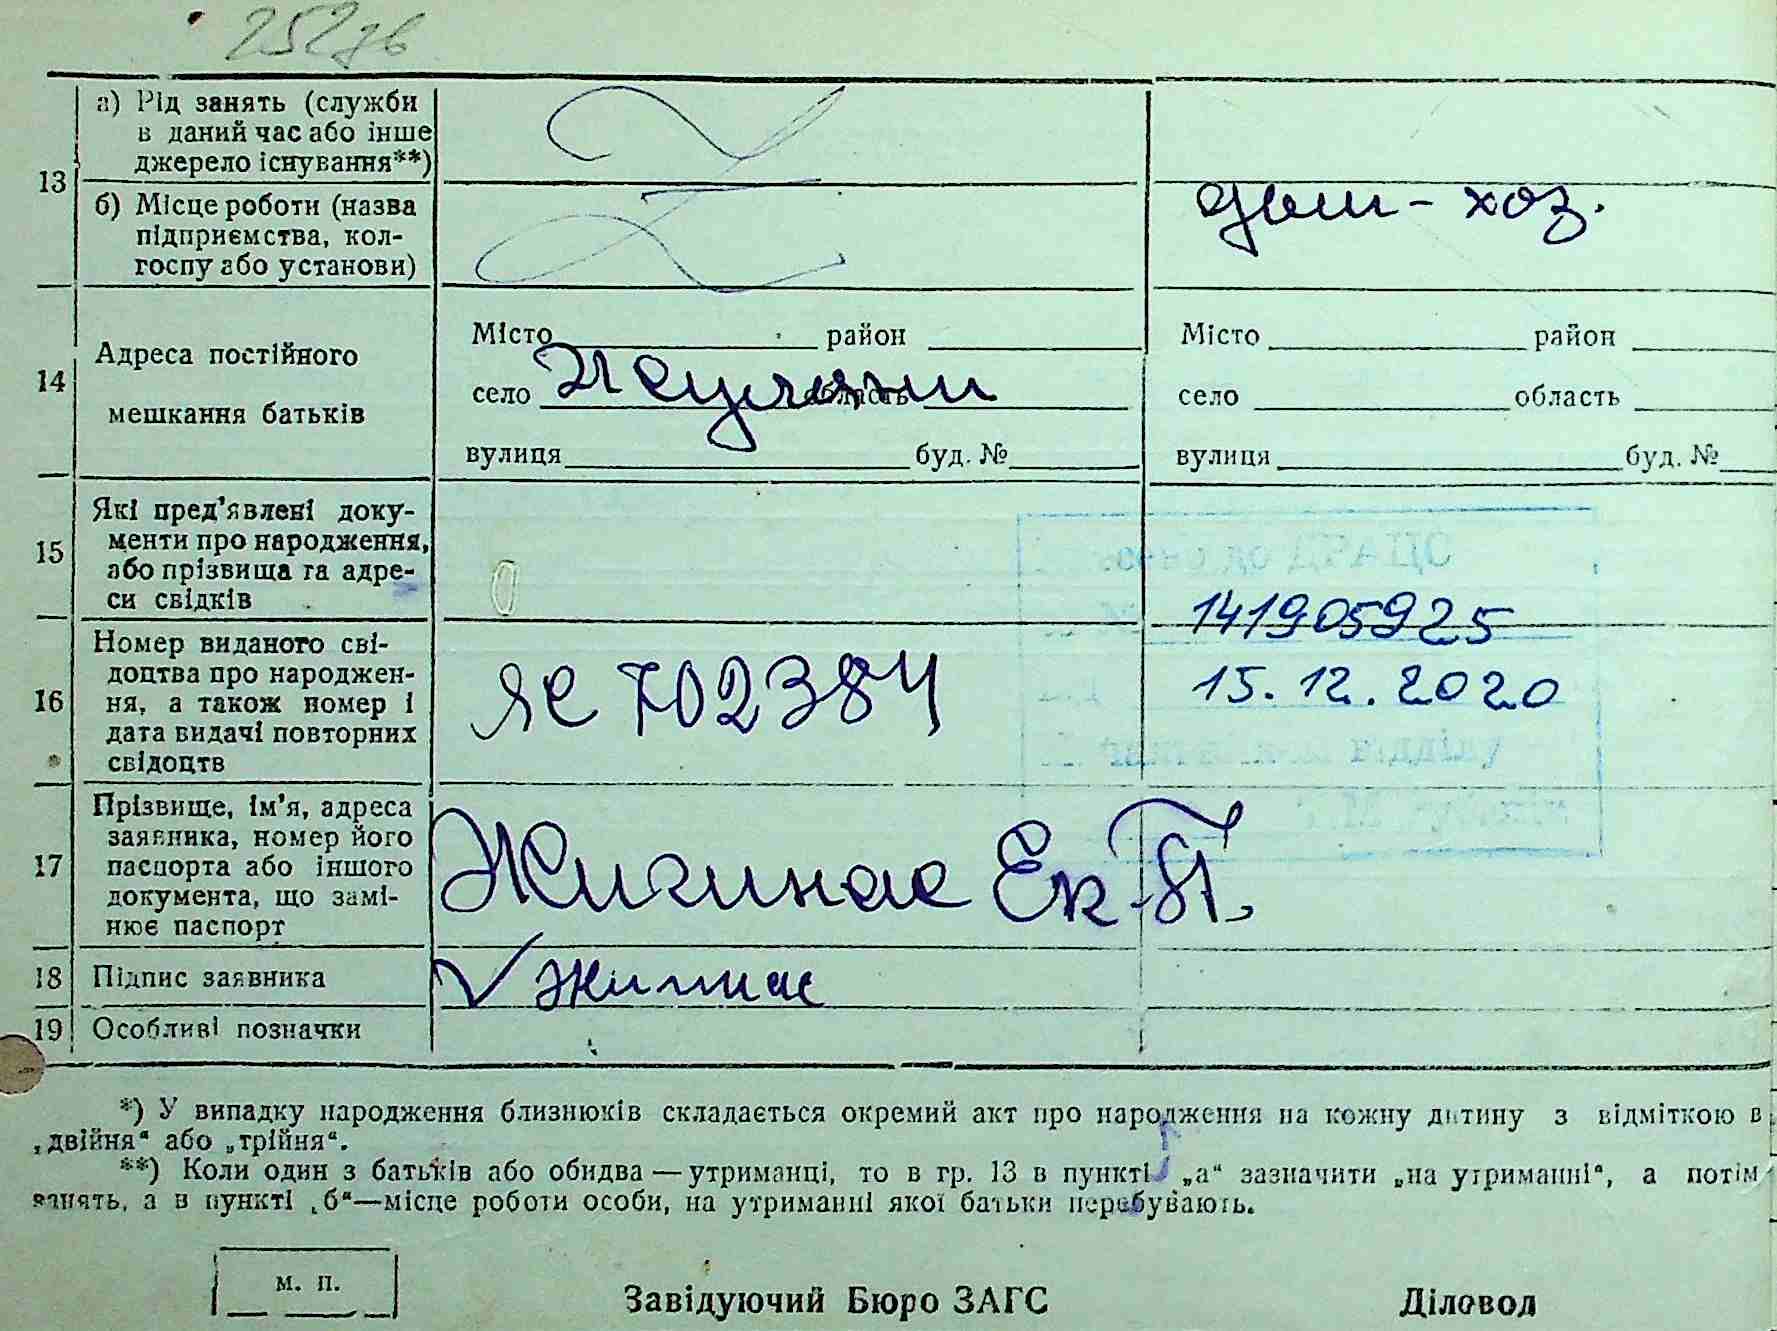 252зв
а) Рід занять (служби
в даний час або інше
джерело існування**)
13
б) Місце роботи (назва
підприємства, кол-
госпу або установи)
дом-хоз.
14
Адреса постійного
мешкання батьків
Місто район
село область
вулиця буд. №
Місто район
село область
вулиця буд. №
15
Які пред'явлені доку-
менти про народження,
або прізвища та адре-
си свідків
16
Номер виданого сві-
доцтва про народжен-
ня, а також номер і
дата видачі повторних
свідоцтв
ЯС 702384
141905925
15.12.2020
17
Прізвище, ім'я, адреса
заявника, номер його
паспорта або іншого
документа, що замі-
нює паспорт
Жигинас Ек П.
18
Підпис заявника
19
Особливі позначки
*) У випадку народження близнюків складається окремий акт про народження на кожну дитину з відміткою в
„двійня“ або „трійня“.
**) Коли один з батьків або обидва — утриманці, то в гр. 13 в пункті „а“ зазначити „на утриманні“, а потім
занять, а в пункті „б“—місце роботи особи, на утриманні якої батьки перебувають.
м. п.
Завідуючий Бюро ЗАГС
Діловод